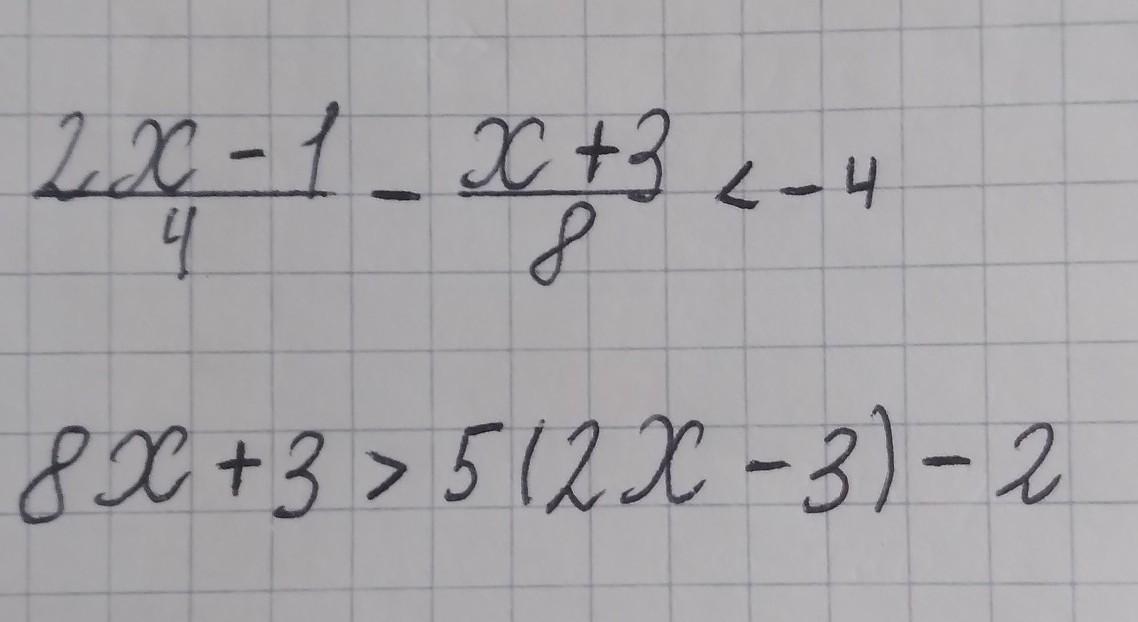 2x - 1 / 4 - x + 3 / 8 < - 4
8x + 3 > 5(2x - 3) - 2